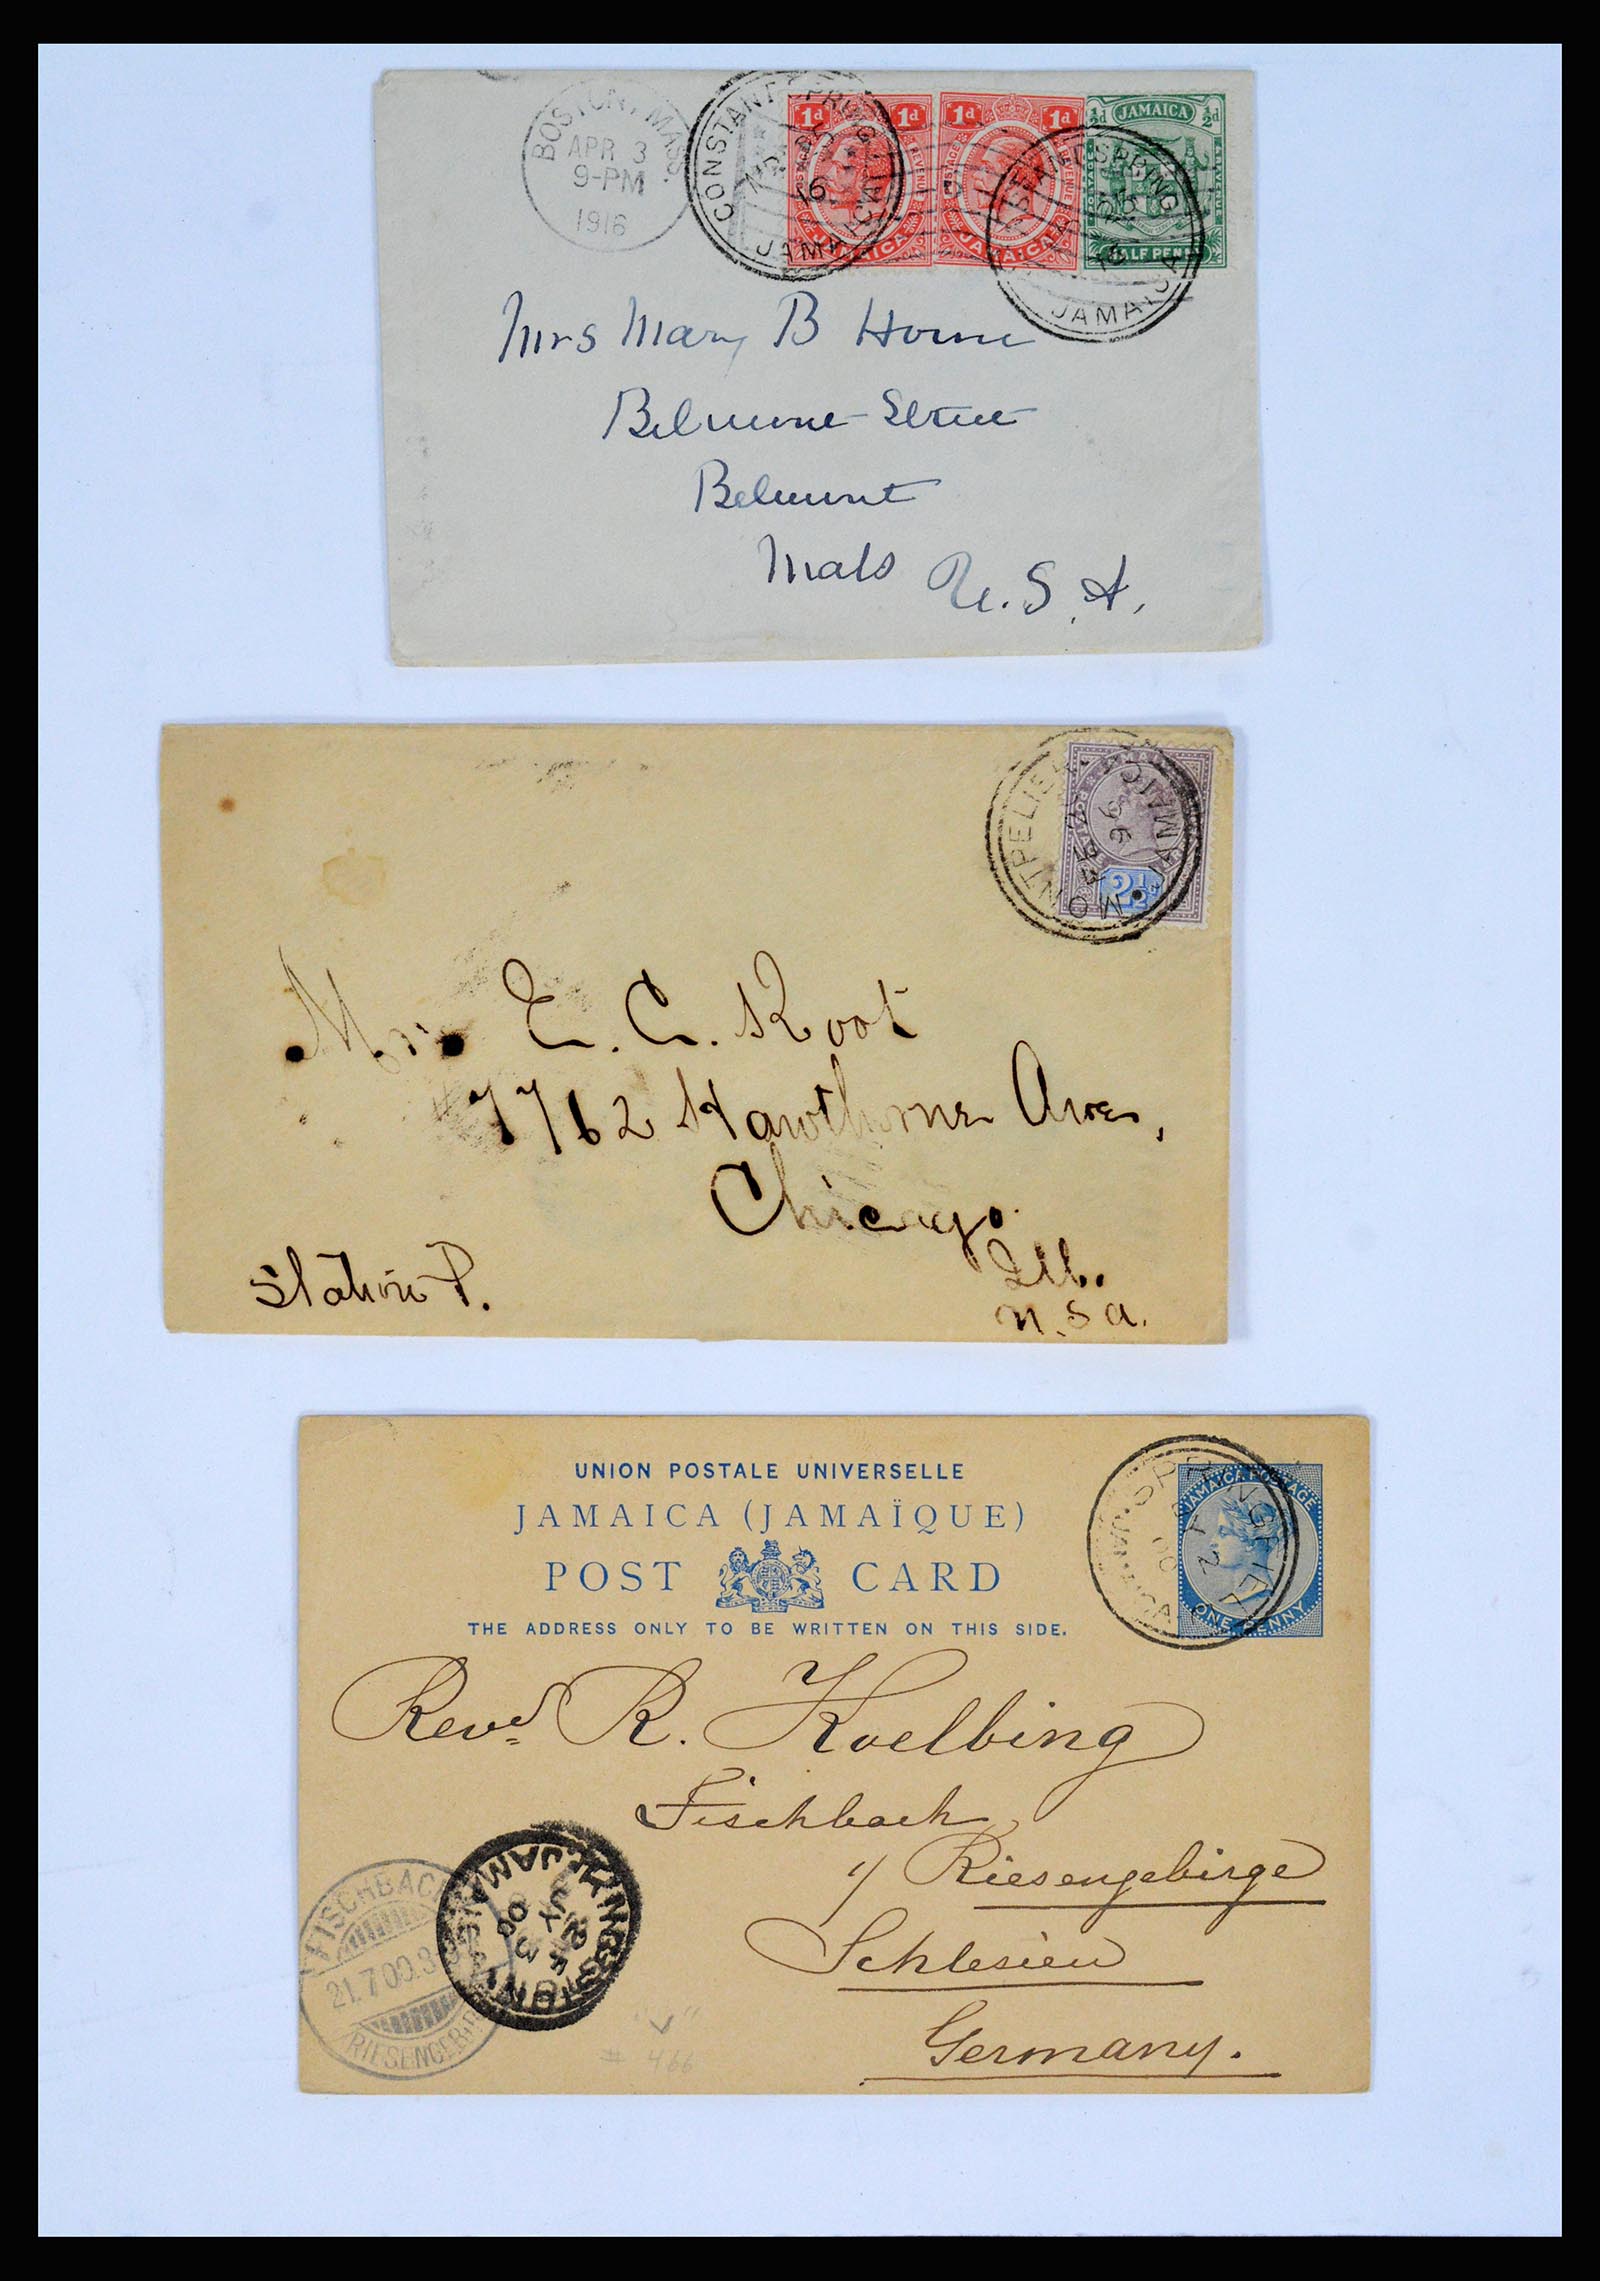 BOSTON, MASS.
APR 3
9-PM
1916
CONSTANT SPRING
16
JAMAICA
1d 1d
JAMAICA
1d 1d
JAMAICA
½d JAMAICA ½d
HALF PENNY
SPRING
16
JAMAICA
Mrs Mary B Horne
Belmont Street
Belmont
Mass U.S.A.
MONTPELIER
JAMAICA
96
2½d
Mrs E. C. Root
7762 Hawthorne Ave,
Chicago
Ill.
Station P.
U.S.a.
UNION POSTALE UNIVERSELLE
JAMAICA (JAMAÏQUE)
POST CARD
THE ADDRESS ONLY TO BE WRITTEN ON THIS SIDE.
JAMAICA POSTAGE
ONE PENNY
SPRINGFIELD
JY 2
00
JAMAICA
Revd R. Koelbing
Fischbach
i/ Riesengebirge
Schlesien
Germany.
FISCHBACH
21.7.00.
RIESENGEB
KINGSTON
JAMAICA
JY 3
00
"V"
# 466